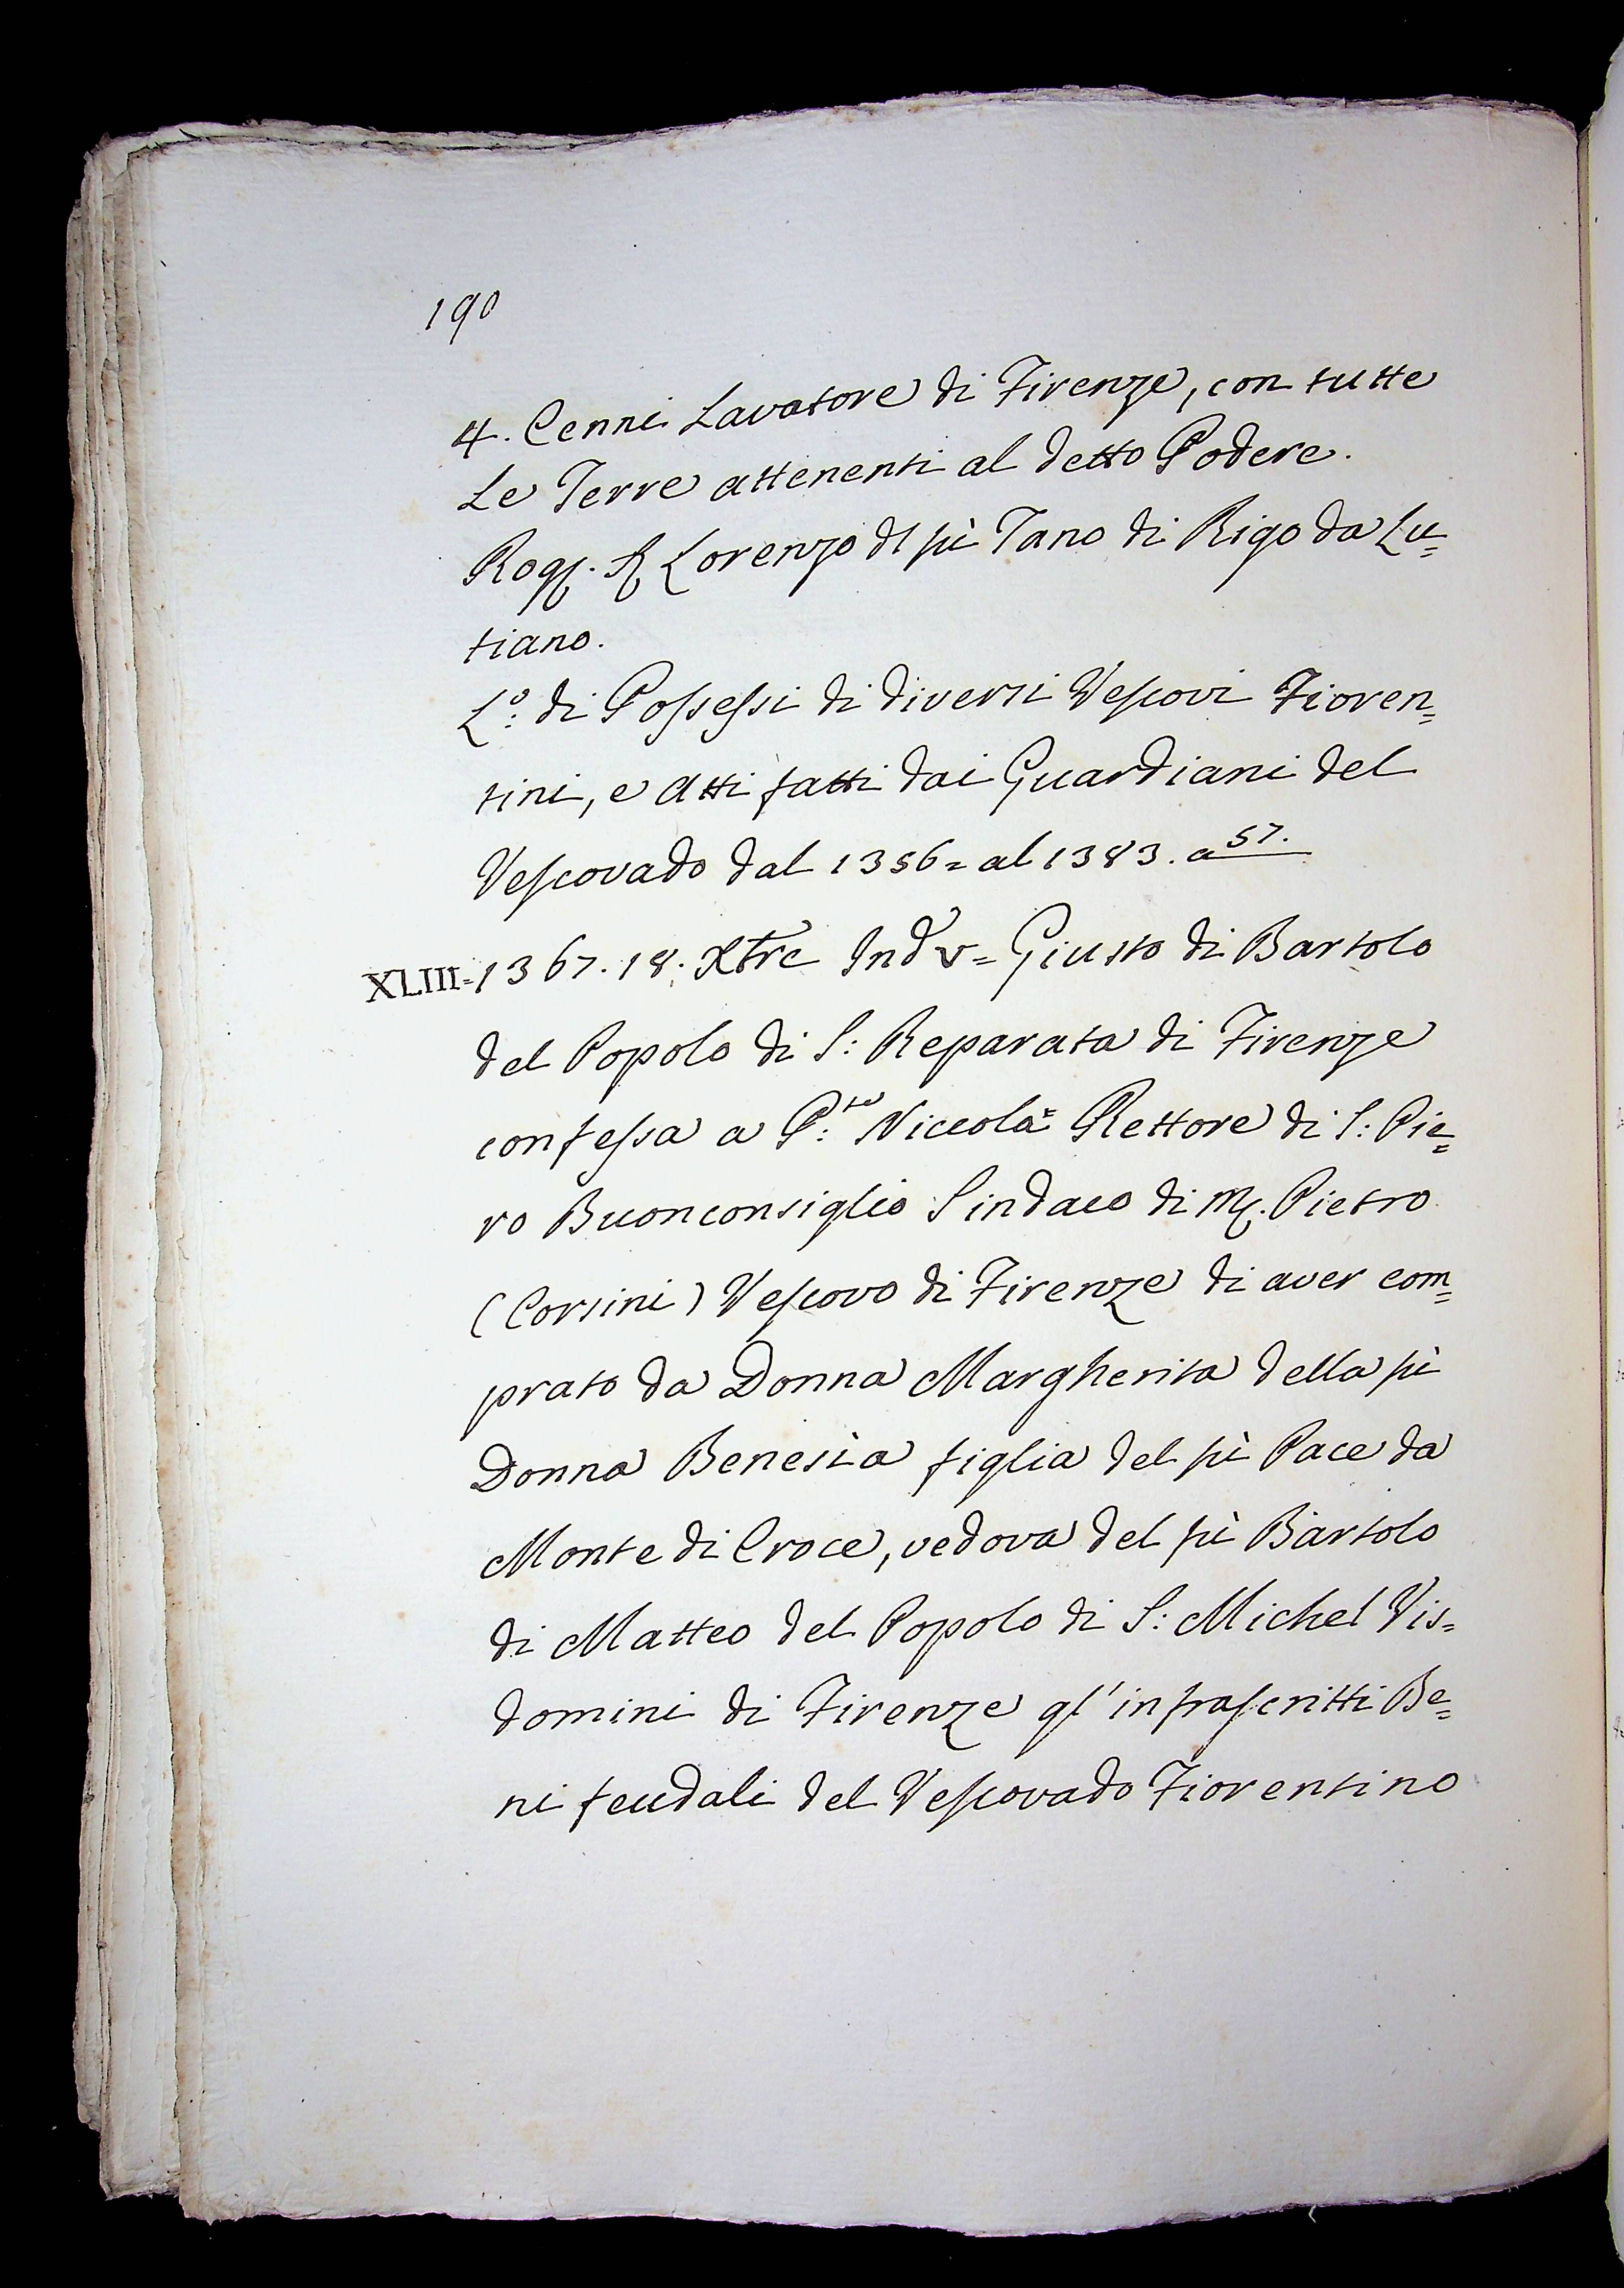 190
4. Cenni Lavatore di Firenze, con tutte
Le Terre attenenti al detto Podere.
Rog. S. Lorenzo dl fù Tano di Rigo da Lu=
tiano.
L.º di Possessi di diversi Vescovi Fioren=
tini, e Atti fatti dai Guardiani del
Vescovado dal 1356= al 1383. a 57.
XLIII=1367. 18. Xbre Ind V= Giusto di Bartolo
del Popolo di S: Reparata di Firenze
confessa a P:te Niccola= Rettore di S: Pie=
ro Buonconsiglio Sindaco di M. Pietro
(Corsini) Vescovo di Firenze di aver com=
prato da Donna Margherita della fù
Donna Benesia figlia del fù Pace da
Monte di Croce, vedova del fù Bartolo
di Matteo del Popolo di S: Michel Vis=
domini di Firenze gl'infrascritti Be=
ni feudali del Vescovado Fiorentino